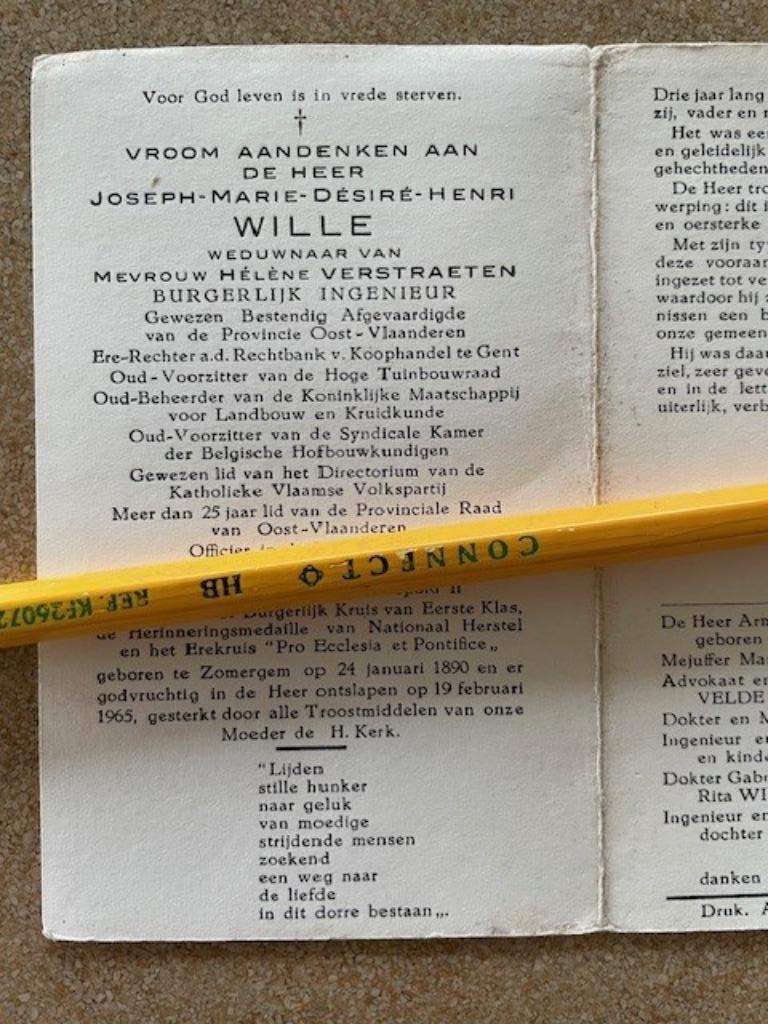 Voor God leven is in vrede sterven.
†
VROOM AANDENKEN AAN
DE HEER
JOSEPH-MARIE-DÉSIRÉ-HENRI
WILLE
WEDUWNAAR VAN
MEVROUW HÉLÈNE VERSTRAETEN
BURGERLIJK INGENIEUR
Gewezen Bestendig Afgevaardigde
van de Provincie Oost-Vlaanderen
Ere-Rechter a.d. Rechtbank v. Koophandel te Gent
Oud-Voorzitter van de Hoge Tuinbouwraad
Oud-Beheerder van de Koninklijke Maatschappij
voor Landbouw en Kruidkunde
Oud-Voorzitter van de Syndicale Kamer
der Belgische Hofbouwkundigen
Gewezen lid van het Directorium van de
Katholieke Vlaamse Volkspartij
Meer dan 25 jaar lid van de Provinciale Raad
van Oost-Vlaanderen
Officier
CONNECT HB REF. KF2607
II
Burgerlijk Kruis van Eerste Klas,
de Herinneringsmedaille van Nationaal Herstel
en het Erekruis "Pro Ecclesia et Pontifice„
geboren te Zomergem op 24 januari 1890 en er
godvruchtig in de Heer ontslapen op 19 februari
1965, gesterkt door alle Troostmiddelen van onze
Moeder de H. Kerk.
"Lijden
stille hunker
naar geluk
van moedige
strijdende mensen
zoekend
een weg naar
de liefde
in dit dorre bestaan„.
Drie jaar lang
zij, vader en
Het was
en geleidelijk
gehechtheden
De Heer
werping: dit
en oersterke
Met zijn
deze
ingezet tot
waardoor hij
nissen een
onze
Hij was
ziel, zeer
en in de
uiterlijk,
De Heer
geboren
Mejuffer
Advokaat
VELDE
Dokter en
Ingenieur
en
Dokter
Rita
Ingenieur
dochter
danken
Druk.